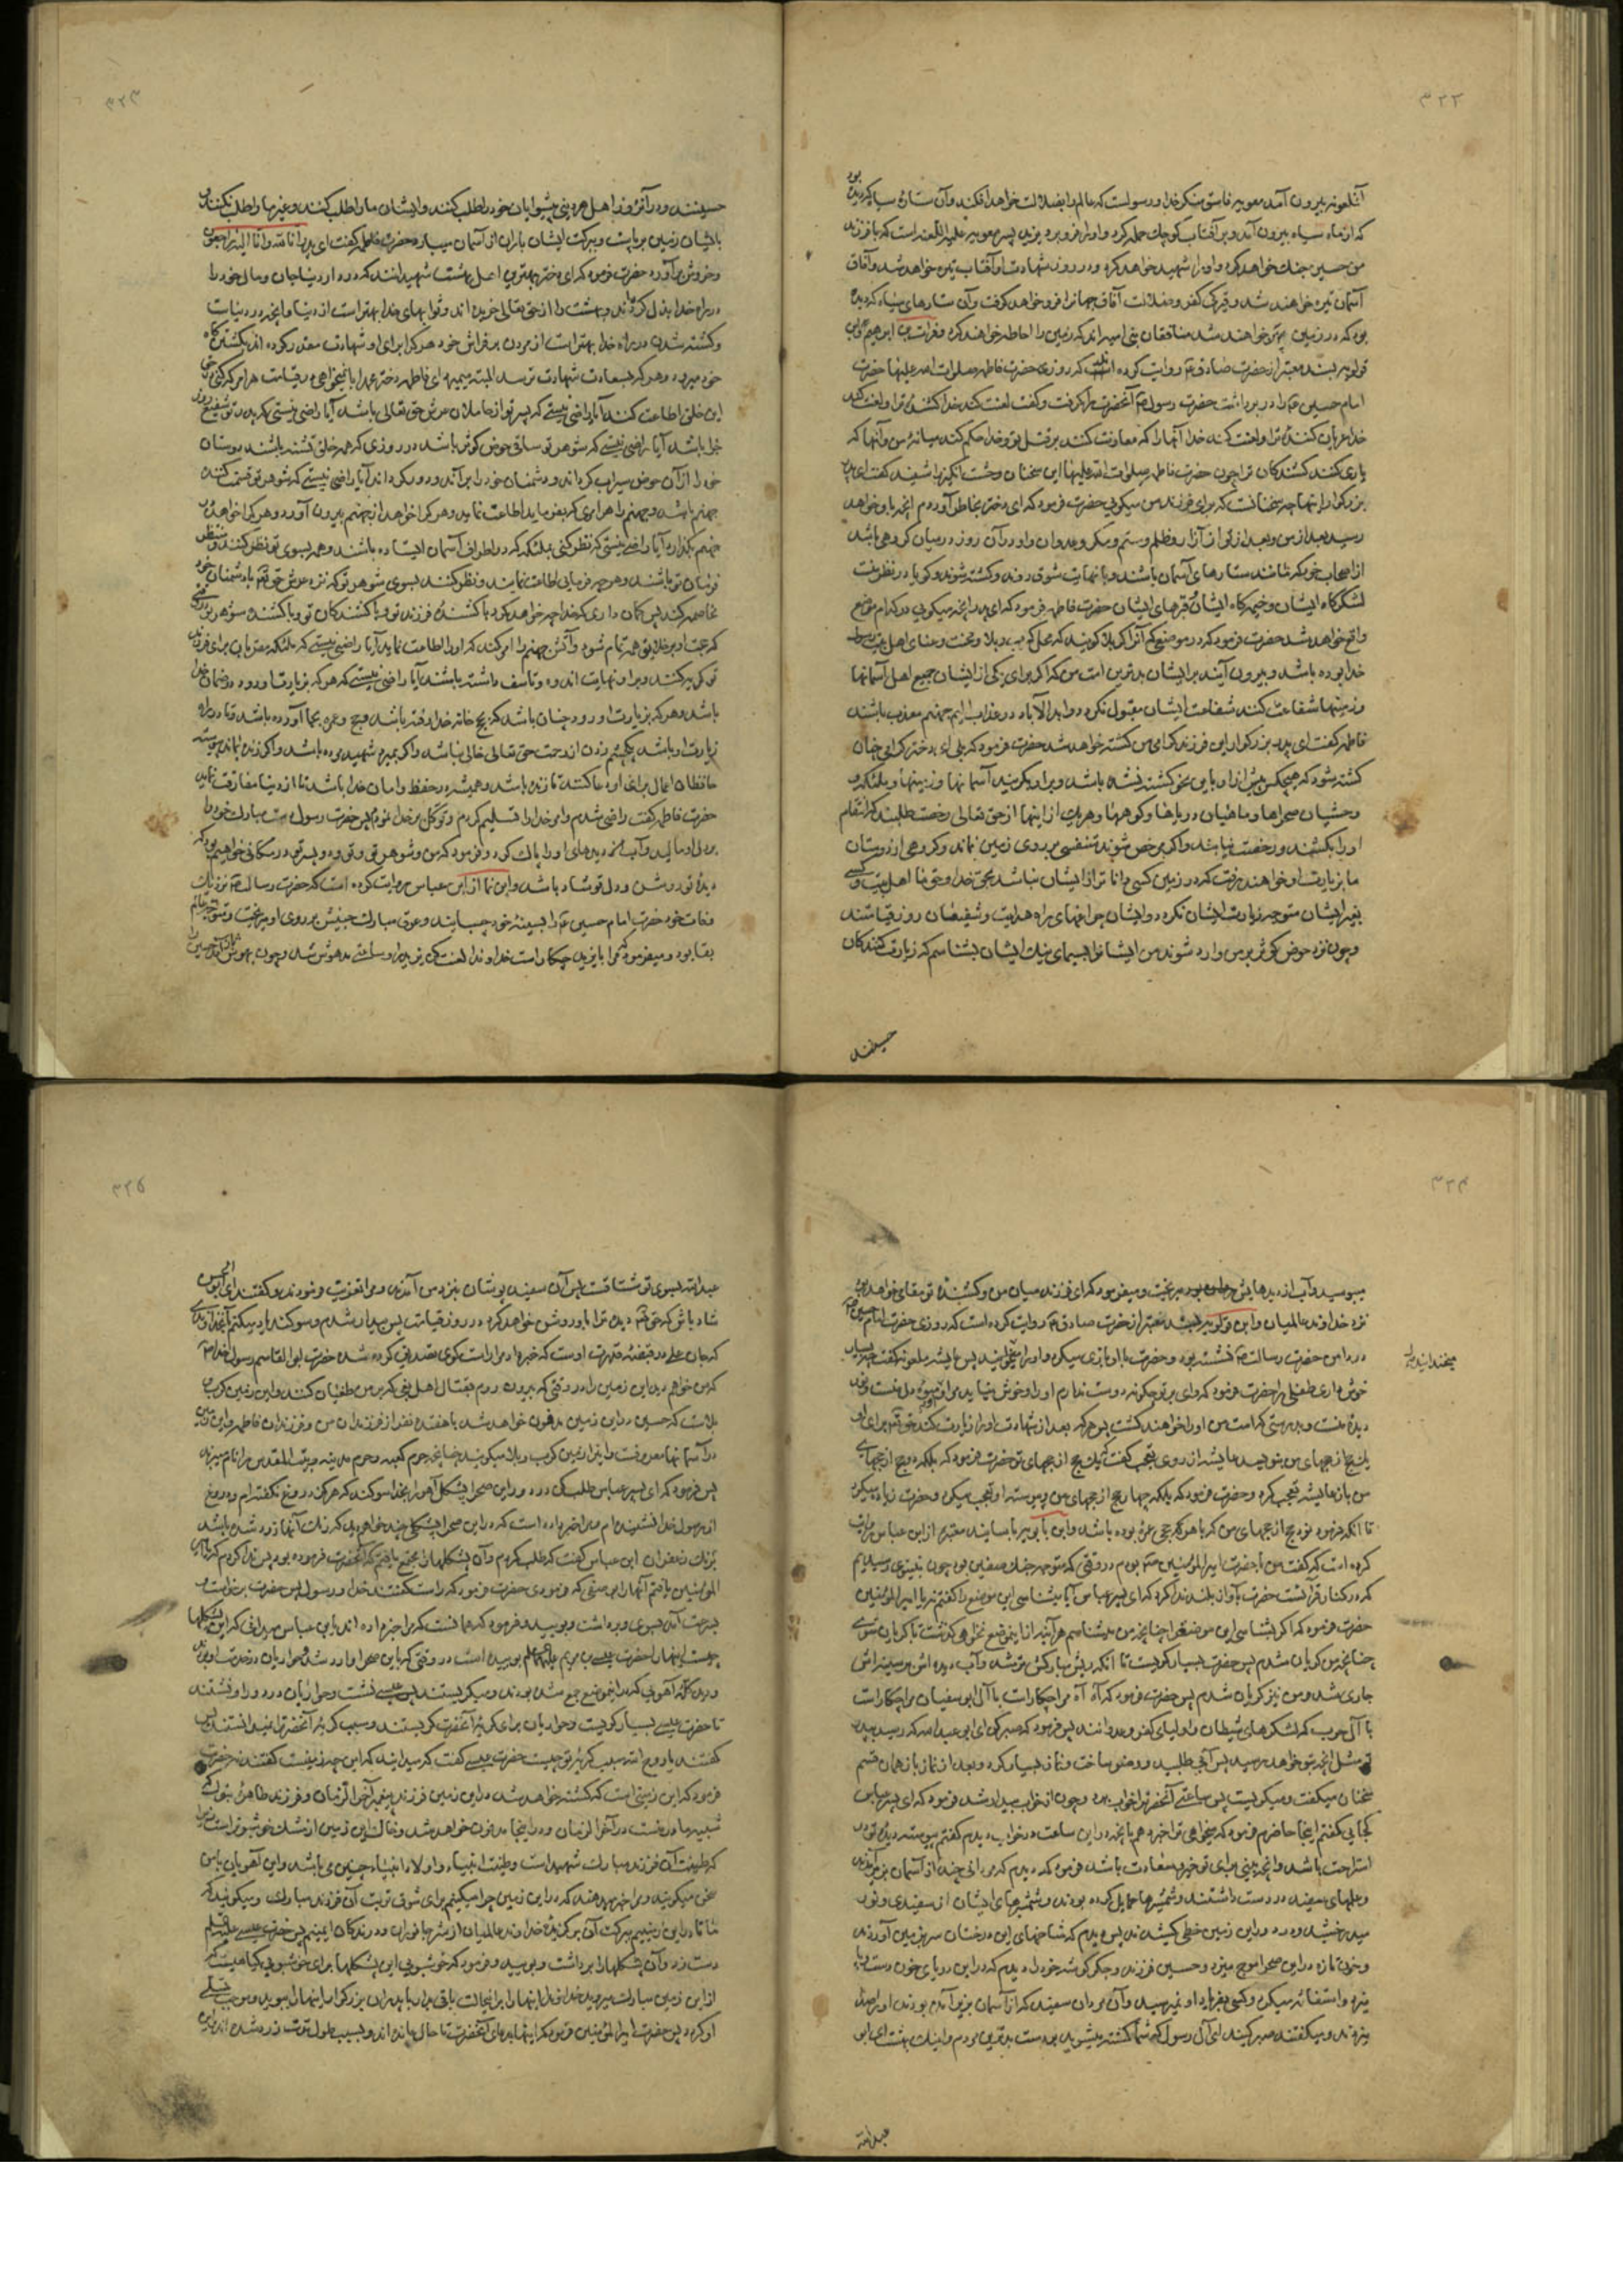 ۳۲۲
آنملعونه بیرون آمد معویه فاسق منکر خدا و رسولست که عالم را بضلالت خواهد افکند و آن ستاره سیاه کردیده بود
که از ماه سیاه بیرون آمد و بر آفتاب کوچک حمله کرد و او را فرو برد یزید پسر معویه علیه اللعنه است که با فرزند
من حسین جنک خواهد کرد و او را شهید خواهد کرد و در روز شهادت او آفتاب تیره خواهد شد و آفاق
آسمان تیره خواهند شد و تیرکی کفر و ضلالت آفاق جهانرا فرو خواهد کرفت و آن ستارهای سیاه که دیده
بود که در زمین خواهند شد منافقان بنی امیه اند که زمین را احاطه خواهند کرد و فرات بن ابراهیم و ابن
قولویه بسند معتبر از حضرت صادق ع روایت کرده اند که روزی حضرت فاطمه صلوات الله علیها حضرت
امام حسین ع را در بر داشت حضرت رسول ص آنحضرت را کرفت و کفت لعنت کند خدا کشندهٔ ترا و لعنت کند
خدا عریان کنندهٔ ترا و لعنت کند خدا آنها را که معاونت کنند بر قتل تو و خدا حکم کند میانهٔ من و آنها که
یاری کنند کشندکان ترا چون حضرت فاطمه صلوات الله علیها این سخنان وحشت انکیز را شنید کفت ای پدر
بزرکوار اینها چه سخنانست که برای فرزند من میکوئی حضرت فرمود که ای دختر بخاطر آوردم آنچه باو خواهد
رسید بعد از من و بعد از تو از آزار و ظلم و ستم و مکر و عدوان و او در آن روز در میان کروهی باشد
از اصحاب خود که مانند ستارهای آسمان باشند و با نهایت شوق روند و کشته شوند و کویا در نظر منست
لشکرکاه ایشان و خیمه کاه ایشان و قبرهای ایشان حضرت فاطمه فرمود که ای پدر آنچه میکوئی در کدام موضع
واقع خواهد شد حضرت فرمود که در موضعی که آنرا کربلا کویند که محل کرب و بلا و محنت و عنای اهل بیت رسول
خدا بوده باشد و بیرون آیند بر ایشان بدترین امت من که اکر برای یکی از ایشان جمیع اهل آسمانها
و زمینها شفاعت کنند شفاعت ایشان مقبول نکردد و ابد الآباد در عذاب الیم جهنم معذب باشند
فاطمه کفت ای پدر بزرکوار این فرزند کرامی من کشته خواهد شد حضرت فرمود که بلی ای دختر کرامی چنان
کشته شود که هیچکس پیش از او باین نحو کشته نشده باشد و بر او بکریند آسمانها و زمینها و ملئکه و
وحشیان صحراها و ماهیان دریاها و کوهها و هر یک از اینها از حق تعالی رخصت طلبند که انتقام
او را بکشند و رخصت نیابند و اکر مرخص شوند متنفسی بر روی زمین نماند و کروهی از دوستان
ما بزیارت او خواهند رفت که در زمین کسی داناتر از ایشان نباشد بحق خدا و حق ما اهل بیت و کسی
بغیر ایشان متوجه زیارت ایشان نکردد و ایشان چراغهای راه هدایت و شفیعان روز قیامتند
و چون نزد حوض کوثر بر من وارد شوند من ایشانرا بسیمای نیک ایشان بشناسم که زیارت کنندکان
حسینند
۳۲۳
حسینند و در آنروز اهل هر دینی پیشوایان خود را طلب کنند و ایشان ما را طلب کنند و غیر ما را طلب نکنند و
بایشان زمین برپاست و ببرکت ایشان باران از آسمان میبارد حضرت فاطمه کفت ای پدر انا لله و انا الیه راجعون
و خروش برآورد حضرت فرمود که ای دختر بهترین اهل بهشت شهیدانند که در دار دنیا جان و مال خود را
در راه خدا بذل کرده اند و بهشت را از حق تعالی خریده اند و ثوابهای خدا بهتر است از دنیا و آنچه در دنیاست
و کشته شدن در راه خدا بهتر است از مردن بر فراش خود هر که را برای او شهادت مقدر کرده اند بکشتن کاه
خود میرود و هر که بسعادت شهادت نرسد البته میمیرد ای فاطمه دختر محمد آیا نمیخواهی در قیامت هر امر که کنی در حق
این خلق اطاعت کنند آیا راضی نیستی که پسر تو از حاملان عرش حق تعالی باشد آیا راضی نیستی که پدر تو شفیع روز
جزا باشد آیا راضی نیستی که شوهر تو ساقی حوض کوثر باشد در روزی که همه خلق تشنه باشند دوستان
خود را از آن حوض سیراب کرداند و دشمنان خود را براند و دور کرداند آیا راضی نیستی که شوهر تو قسمت کننده
جهنم باشد و جهنم را هر امری که بفرماید اطاعت نماید و هر که را خواهد از جهنم بیرون آورد و هر که را خواهد در
جهنم بکذارد آیا راضی نیستی که نظر کنی بملئکه که در اطراف آسمان ایستاده باشند و همه بسوی تو نظر کنند و منتظر
فرمان تو باشند و هر چه فرمایی اطاعت نمایند و نظر کنند بسوی شوهر تو که نزد عرش حق تعالی با دشمنان خود
مخاصمه کند پس کمان داری که خدا چه خواهد کرد با کشندهٔ فرزند تو و با کشندکان تو و با کشنده شوهر تو در وقتی
که حجت او بر خلایق همه تمام شود و آتش جهنم را امر کند که او را اطاعت نماید آیا راضی نیستی که ملئکه مقربان برای فرزند
تو کریه کنند و بر او نهایت اندوه و تاسف داشته باشند آیا راضی نیستی که هر که بزیارت او رود در ضمان خدا
باشد و هر که بزیارت او رود چنان باشد که بحج خانه خدا رفته باشد و حج و عمره بجا آورده باشد و تا در راه
زیارت او باشد یکچشم زدن از رحمت حق تعالی خالی نباشد و اکر بمیرد شهید مرده باشد و اکر زنده بماند پیوسته
حافظان اعمال برای او دعا کنند تا زنده باشد و همیشه در حفظ و امان خدا باشد تا از دنیا مفارقت نماید
حضرت فاطمه کفت راضی شدم و امر خدا را تسلیم کردم و توکل بر خدا نمودم پس حضرت رسول دست مبارک خود را
بر دل او مالید و آب از دیدهای او را پاک کرد و فرمود که من و شوهر تو و تو و دو پسر تو در مکانی خواهیم بود که
دیدهٔ تو روشن و دل تو شاد باشد و ابن نما از ابن عباس روایت کرده است که حضرت رسالت ص نزدیک
وفات خود حضرت امام حسین ع را بسینهٔ خود چسبانید و عرق مبارک جبینش بر روی او میریخت و متوجه عالم
بقا بود و میفرمود که مرا با یزید چکار است خداوندا لعنت کن یزید را و ساعتی مدهوش شد و چون بهوش باز آمد حسین را
۳۲۴
میبوسید و آب از دیدهایش میریخت و میفرمود که ای فرزند میان من و کشندهٔ تو مقامی خواهد بود
نزد خداوند عالمیان و ابن قولویه بسند معتبر از حضرت صادق ع روایت کرده است که روزی حضرت امام حسین ع
در دامن حضرت رسالت ص نشسته بود و حضرت با او بازی میکرد و او را میخندانید پس عایشه ملعونه کفت چه بسیار
خوش داری این طفل را حضرت فرمود که وای بر تو چکونه دوست ندارم او را و خوش نیاید مرا و او میوه دل منست و نور
دیدهٔ منست و بدرستی که امت من او را خواهند کشت پس هر که بعد از شهادت او را زیارت کند حق تعالی برای او
یک حج از حجهای من بنویسد عایشه از روی تعجب کفت یک حج از حجهای تو حضرت فرمود که بلکه دو حج از حجهای
من باز عایشه تعجب کرد و حضرت فرمود که بلکه چهار حج از حجهای من و پیوسته او تعجب میکرد و حضرت زیاده میکرد
تا آنکه فرمود نود حج از حجهای من که با هر حجی عمرهٔ بوده باشد و ابن بابویه باسانید معتبر از ابن عباس روایت
کرده است که کفت من با حضرت امیر المؤمنین ع بودم در وقتی که متوجه جنک صفین بود چون بنینوی رسیدیم
که در کنار فرات است حضرت بآواز بلند ندا کرد که ای پسر عباس آیا میشناسی این موضع را کفتم نه یا امیر المؤمنین
حضرت فرمود که اکر بشناسی این موضع را چنانچه من میشناسم هر آینه از این موضع نخواهی کذشت تا کریان شوی
چنانچه من کریان شدم پس حضرت بسیار کریست تا آنکه ریش مبارکش تر شد و آب دیده اش بر سینه اش
جاری شد و من نیز کریان شدم پس حضرت فرمود که آه آه مرا چکار است با آل ابو سفیان مرا چکار است
با آل حرب که لشکرهای شیطان و اولیای کفر و عدوانند پس فرمود که صبر کن ای ابو عبد الله که رسید بپدر
تو مثل آنچه بتو خواهد رسید پس آبی طلبید و وضو ساخت و نماز بسیار کرد و بعد از نماز باز همان قسم
سخنان میکفت و میکریست پس ساعتی آنحضرت را خواب برد و چون از خواب بیدار شد فرمود که ای پسر عباس
کجایی کفتم اینجا حاضرم فرمود که میخواهی ترا خبر دهم بآنچه در این ساعت در خواب دیدم کفتم پیوسته دیدهٔ تو در
استراحت باشد و آنچه بینی برای تو خیر و سعادت باشد فرمود که دیدم که مردانی چند از آسمان بزیر آمدند
و علمهای سفید در دست داشتند و شمشیرها حمایل کرده بودند و شمشیرهای ایشان از سفیدی و نور
میدرخشید و در دور این زمین خطی کشیدند پس دیدم که شاخهای این درختان سر بزمین آوردند
و خون تازه در این صحرا موج میزد و حسین فرزند و جکر کوشه خود را دیدم که در این دریای خون دست و پا
میزد و استغاثه میکرد و کسی بفریاد او نمیرسید و آن مردان سفید که از آسمان بزیر آمده بودند او را صدا
میزدند و میکفتند صبر کنید ای آل رسول که شما کشته میشوید بر دست بدترین مردم و اینک بهشت ای ابو
عبد الله
میخندانید
۳۲۵
عبد الله بسوی تو مشتاقست پس آن سفید پوشان بنزد من آمدند و مرا تعزیت فرمودند و کفتند ای ابو الحسن
شاد باش که حق تعالی دیده ترا باو روشن خواهد کرد در روز قیامت پس بیدار شدم و سوکند یاد میکنم بآنخداوندی
که جان علی در قبضهٔ قدرت اوست که خبر داد مرا راست کوی تصدیق کرده شده حضرت ابو القاسم رسول خدا ص
که من خواهم دید این زمین را در وقتی که بیرون روم بقتال اهل بغی که بر من طغیان کنند و این زمین کرب و
بلاست که حسین در این زمین مدفون خواهد شد با هفده نفر از فرزندان من و فرزندان فاطمه و این زمین
در آسمانها معروفست و اینرا زمین کرب و بلا میکویند چنانچه حرم کعبه و حرم مدینه و بیت المقدس را نام میبرند
پس فرمود که ای پسر عباس طلب کن در دور این صحرا پشکل آهو را بخدا سوکند که هرکز دروغ نکفته ام و دروغ
از رسول خدا نشنیده ام مرا خبر داده است که در این صحرا پشکلی چند خواهم دید که رنک آنها زرد شده باشد
برنک زعفران ابن عباس کفت که طلب کردم و آن پشکلها را مجتمع یافتم که آنحضرت فرموده بود پس ندا کردم که یا امیر
المؤمنین یافتم آنها را بصفتی که فرمودی حضرت فرمود که راست کفتند خدا و رسول پس حضرت برخاست و
بسرعت آمد بسوی و برداشت و بویید و فرمود که همانست که مرا خبر داده اند یابن عباس میدانی که این پشکلها
چیست اینها را حضرت عیسی بن مریم علیهما السلام بوییده است در وقتی که باین صحرا وارد شد و حواریان در خدمت او بودند
و دید کلهٔ آهویی که در این موضع جمع شده بودند و میکریستند پس عیسی نشست و حواریان در دور او نشستند
تا حضرت عیسی بسیار کریست و حواریان برای کریهٔ آنحضرت کریستند و سبب کریهٔ آنحضرت را نمیدانستند پس
کفتند یا روح الله سبب کریهٔ تو چیست حضرت عیسی کفت که میدانید که این چه زمینست کفتند نه حضرت
فرمود که این زمینی است که کشته خواهد شد در این زمین فرزند پیغمبر آخر الزمان و فرزند طاهرهٔ بتول که
شبیه مادر منست در آخر الزمان و در اینجا مدفون خواهد شد و خاک این زمین از مشک خوشبوتر است زیرا
که طینت آن فرزند مبارک شهید است و طینت انبیاء و اولاد انبیاء چنین می باشد و این آهویان با من
سخن میکویند و مرا خبر میدهند که در این زمین چرا میکنیم برای شوق تربت آن فرزند مبارک و میکویند که
ما تا در این زمینیم ببرکت آن برکزیدهٔ خداوند عالمیان از شر جانوران و درندکان ایمنیم پس حضرت عیسی علیه السلام
دست زد و آن پشکلها را برداشت و بویید و فرمود که خوشبویی این پشکلها برای خوشبویی کیاهیست که
از این زمین مبارک میروید خداوندا اینها را بر اینحالت باقی بدار تا پدر آن بزرکوار اینها را ببوید و موجب تسلی
او کردد پس حضرت امیر المؤمنین فرمود که اینها بدعای آنحضرت تا حال مانده اند و بسبب طول مدت زرد شده اند و این